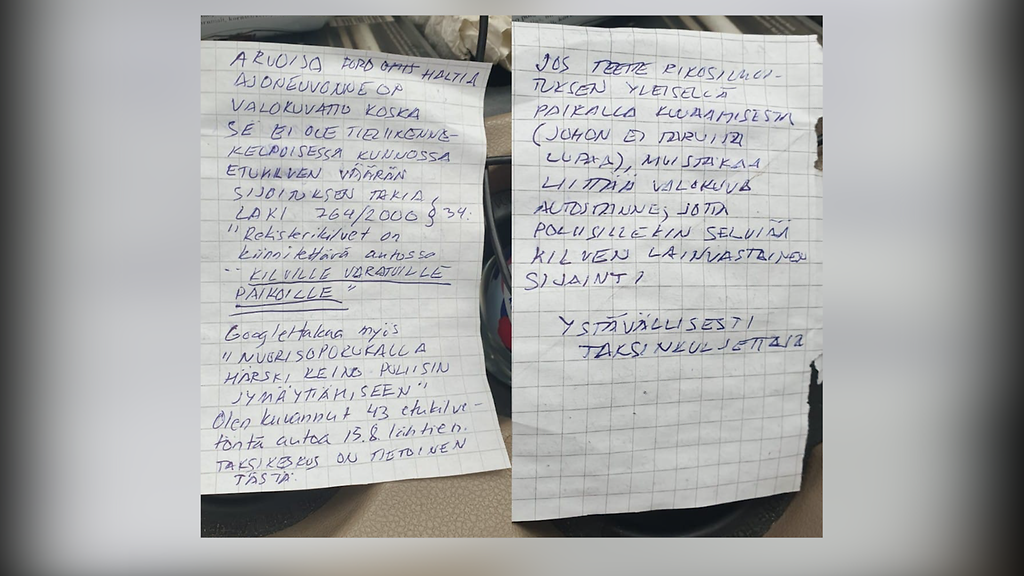 ARVOISA FORD OMIS HALTIJA
AJONEUVONNE ON
VALOKUVATTU KOSKA
SE EI OLE TIELIIKENNE-
KELPOISESSA KUNNOSSA
ETUKILVEN VÄÄRÄN
SIJOITUKSEN TAKIA
LAKI 764/2000 § 34.
"Rekisterikilvet on
kiinnitettävä autossa
-- KILVILLE VARATUILLE
PAIKOILLE"
Googlettakaa myös
"NUORISOPORUKALLA
HÄRSKI KEINO POLIISIN
JYMÄYTTÄMISEEN"
Olen kuvannut 43 etukilve-
töntä autoa 15.8. lähtien.
TAKSIKESKUS ON TIETOINEN
TÄSTÄ.
JOS TEETTE RIKOSILMOI-
TUKSEN YLEISELLÄ
PAIKALLA KUVAAMISESTA
(JOHON EI TARVITA
LUPAA), MUISTAKAA
LIITTÄÄ VALOKUVA
AUTOSTANNE, JOTTA
POLIISILLEKIN SELVIÄÄ
KILVEN LAINVASTAINEN
SIJAINTI
YSTÄVÄLLISESTI
TAKSINKULJETTAJA